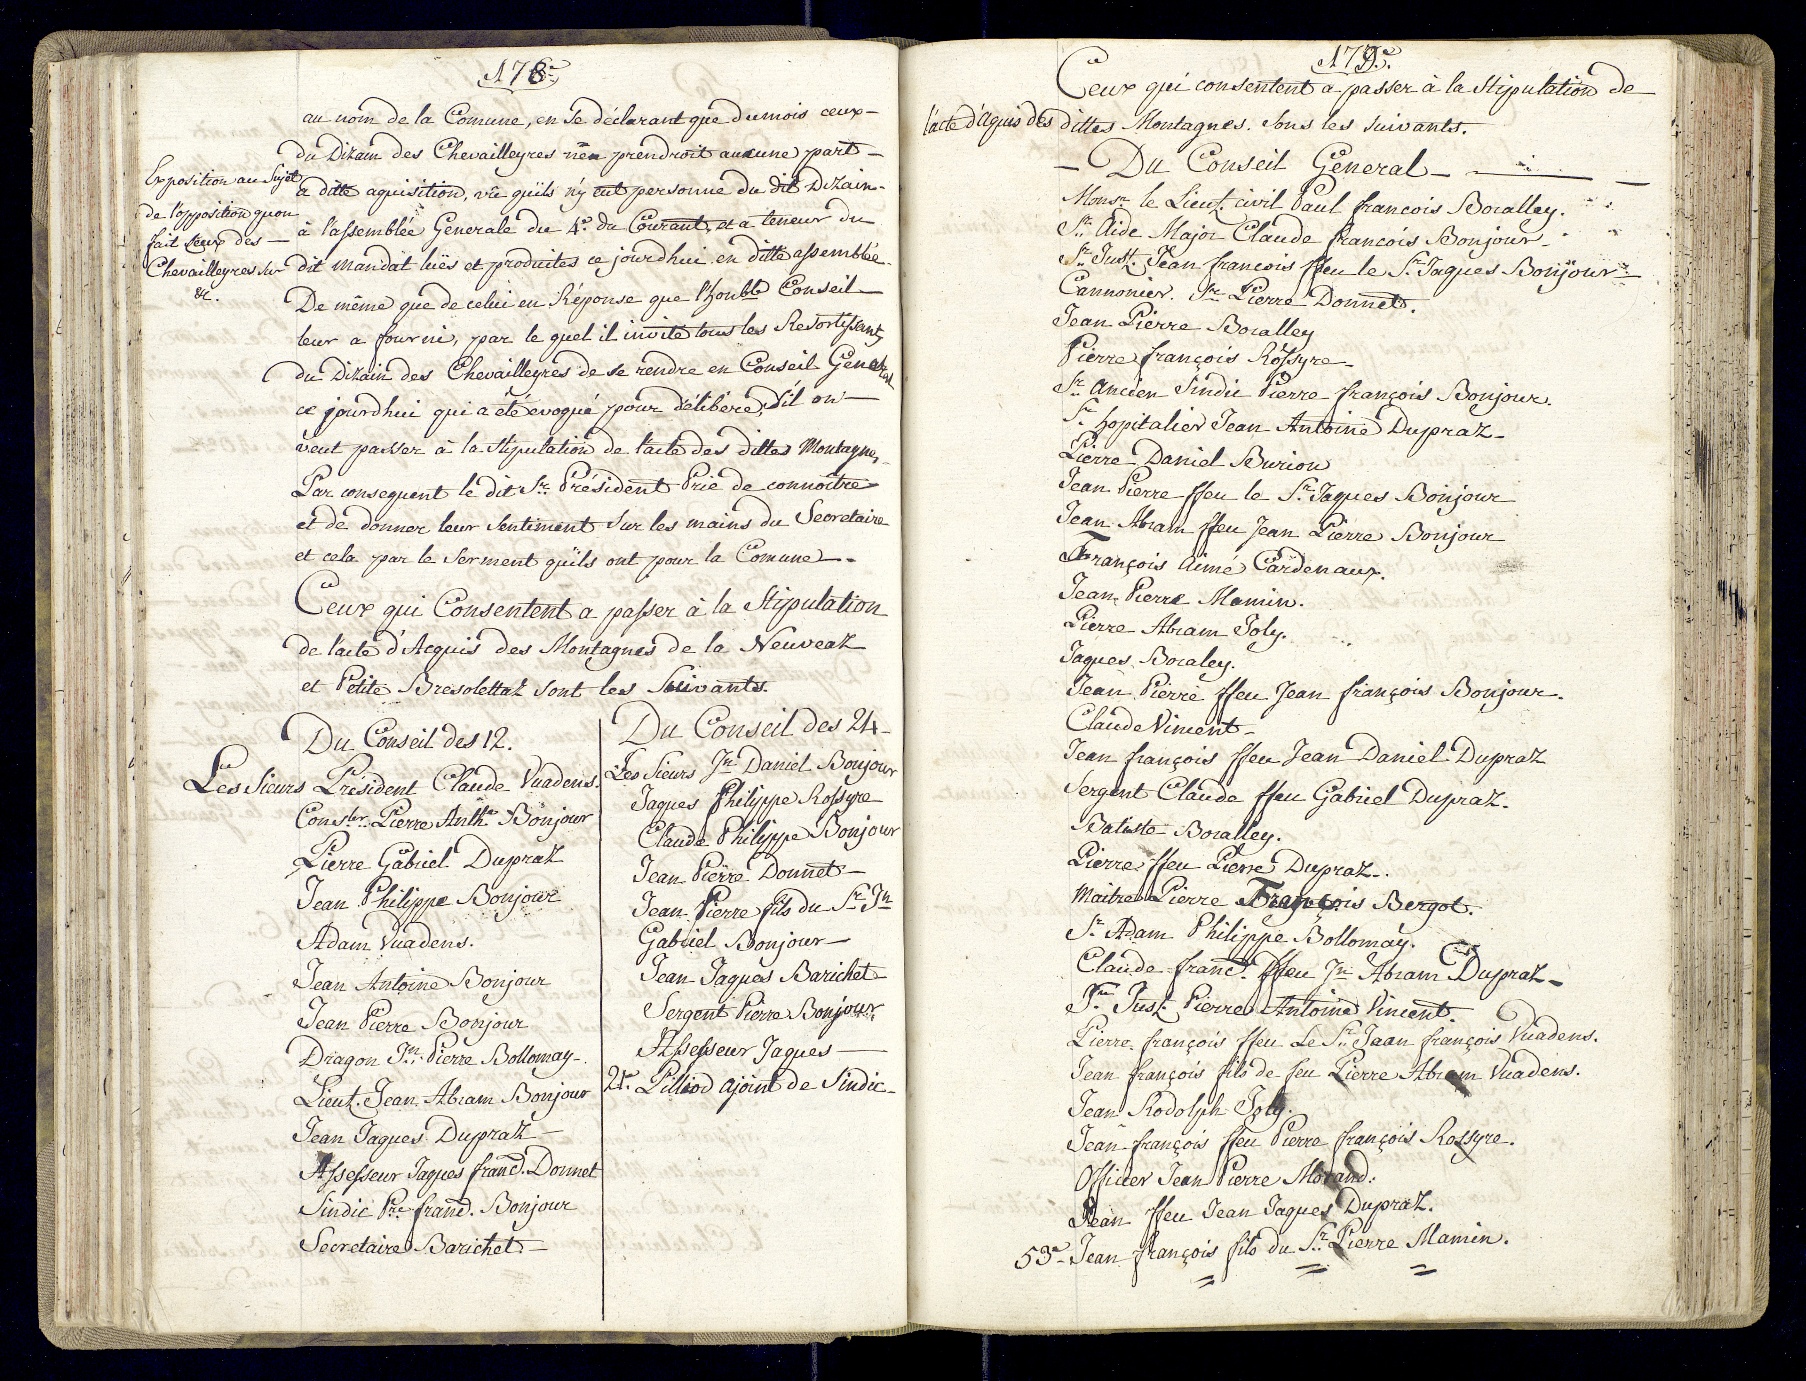 178.e
au nom de la Comune, en se déclarant que dumois ceux-
du Dizain des Chevailleyres n'en prendroit aucune part-
Exposition au Sujet
de l'opposition quon
fait Ceux des-
Chevailleyres sur
&c.
a ditte aquisition, vû quïls n'y eut personne du dit Dizain-
à l'assemblée Generale du 4.e du Courant, et a teneur du
dit mandat lües et produites ce jourdhui en ditte assemblée-
De même que de celui en Réponse que l'honble Conseil-
leur a fourni, par le quel il invite tous les Resortissants
du Dizain des Chevailleyres de se rendre en Conseil General
ce jourdhui qui a été evoqué pour délibere, s'il on-
veut passer à la Stipulation de l'acte des dittes Montagnes,
Par consequent le dit Sr. Président Prie de connoitre
et de donner leur Sentiment Sur les mains du Secretaire
et cela par le Serment quïls ont pour la Comune-.
Ceux qui Consentent a passer à la Stipulation
de l'acte d'Acquis des Montagnes de la Neuveaz
et Petite Bresolettaz sont les Suivants.
Du Conseil des 12.
Les Sieurs Président Claude Vuadens.
Conser. Pierre Anthe Bonjour
Pierre Gabriel Dupraz
Jean Philippe Bonjour
Adam Vuadens.
Jean Antoine Bonjour
Jean Pierre Bonjour
Dragon Jn. Pierre Bollomay-.
Lieut. Jean Abram Bonjour
Jean Jaques Dupraz-
Assesseur Jaques franc. Donnet
Sindic Pre. franc. Bonjour
Secretaire Barichet-
Du Conseil des 24-
Les Sieurs Jn. Daniel Bonjour
Jaques Philippe Rossyre
Claude Philippe Bonjour
Jean Pierre Donnet-
Jean Pierre fils du Sr. Jn
Gabriel Bonjour-
Jean Jaques Barichet
Sergent Pierre Bonjour
Assesseur Jaques-
Pilliod ajoint de Sindic-
179.e
Ceux qui consentent a passer à la Stipulation de
l'acte d'aquis des dittes Montagnes. Sons les suivants.
- Du Conseil General-
Monsr. le Lieut. civil Paul francois Boralley.
Sr. Aide Major Claude francois Bonjour-
Sr. Just. Jean francois ffeu le Sr. Jaques Bonjour-
Cannonier. Sr. Pierre Donnet.
Jean Pierre Boralley
Pierre françois Rossyre-
Sr. Ancien Sindic Pierre françois Bonjour.
Sr. hopitalier Jean Antoine Dupraz-
Pierre Daniel Burion
Jean Pierre ffeu le Sr. Jaques Bonjour
Jean Abram ffeu Jean Pierre Bonjour
François Aimé Cardenaux.
Jean Pierre Mamin.
Pierre Abram Joly.
Jaques Boraley.
Jean Pierre ffeu Jean françois Bonjour.
Claude Vincent-
Jean françois ffeu Jean Daniel Dupraz
Sergent Claude ffeu Gabriel Dupraz.
Batiste Boralley.
Pierre ffeu Pierre Dupraz-.
Maitre Pierre François Bergot.
Sr. Adam Philippe Bollomay.
Claude franc. ffeu Jn Abram Dupraz-
Sr. Just. Pierre Antoine Vincent.
Pierre françois ffeu Le Sr. Jaan françois Vuadens.
Jean françois fils de feu Pierre Abram Vuadens.
Jean Rodolph Joly.
Jean françois ffeu Pierre françois Rossyre.
Officier Jean Pierre Morand:
Jean ffeu Jean Jaques Dupraz.
53e- Jean françois fils du Sr. Pierre Mamin.